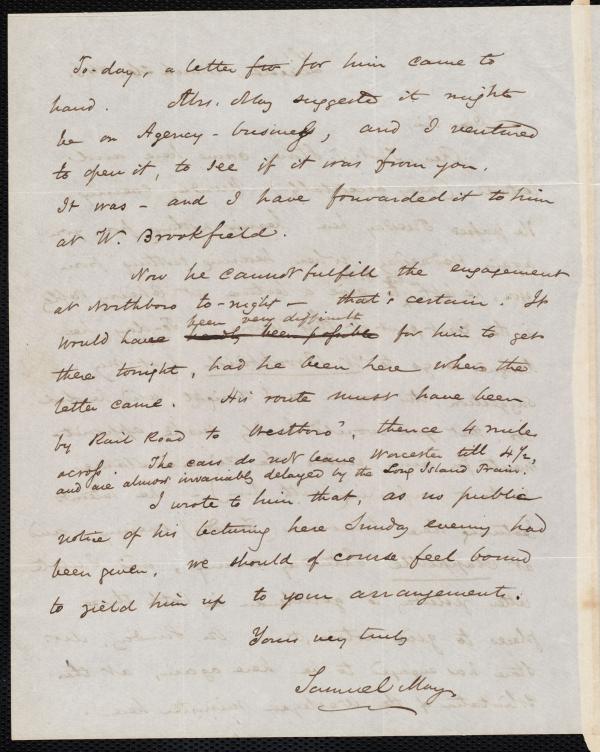 To-day, a letter fro for him came to
hand. Mrs. May suggests it might
be on Agency-business, and I ventured
to open it, to see if it was from you.
It was - and I have forwarded it to him
at W. Brookfield.
Now he cannot fulfill the engagement
at Northboro to-night - that's certain. It
been very difficult
would have hardly been possible for him to get
there tonight, had he been here when the
letter came. His route must have been
by Rail Road to Westboro', thence 4 miles
across. The cars do not leave Worcester till 4 1/2,
and are almost invariably delayed by the Long Island Train.
I wrote to him that, as no public
notice of his lecturing here Sunday evening had
been given, we should of course feel bound
to yield him up to your arrangements.
Yours very truly
Samuel May